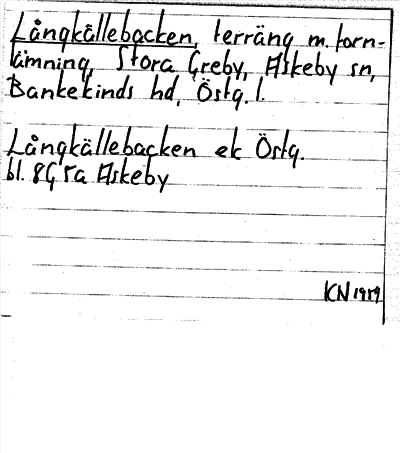 Långkällebacken, terräng m. forn-
lämning, Stora Greby, Askeby sn,
Bankekinds hd, Östg. l.
Långkällebacken ek Östg.
bl. 8G 5a Askeby
KN 1979